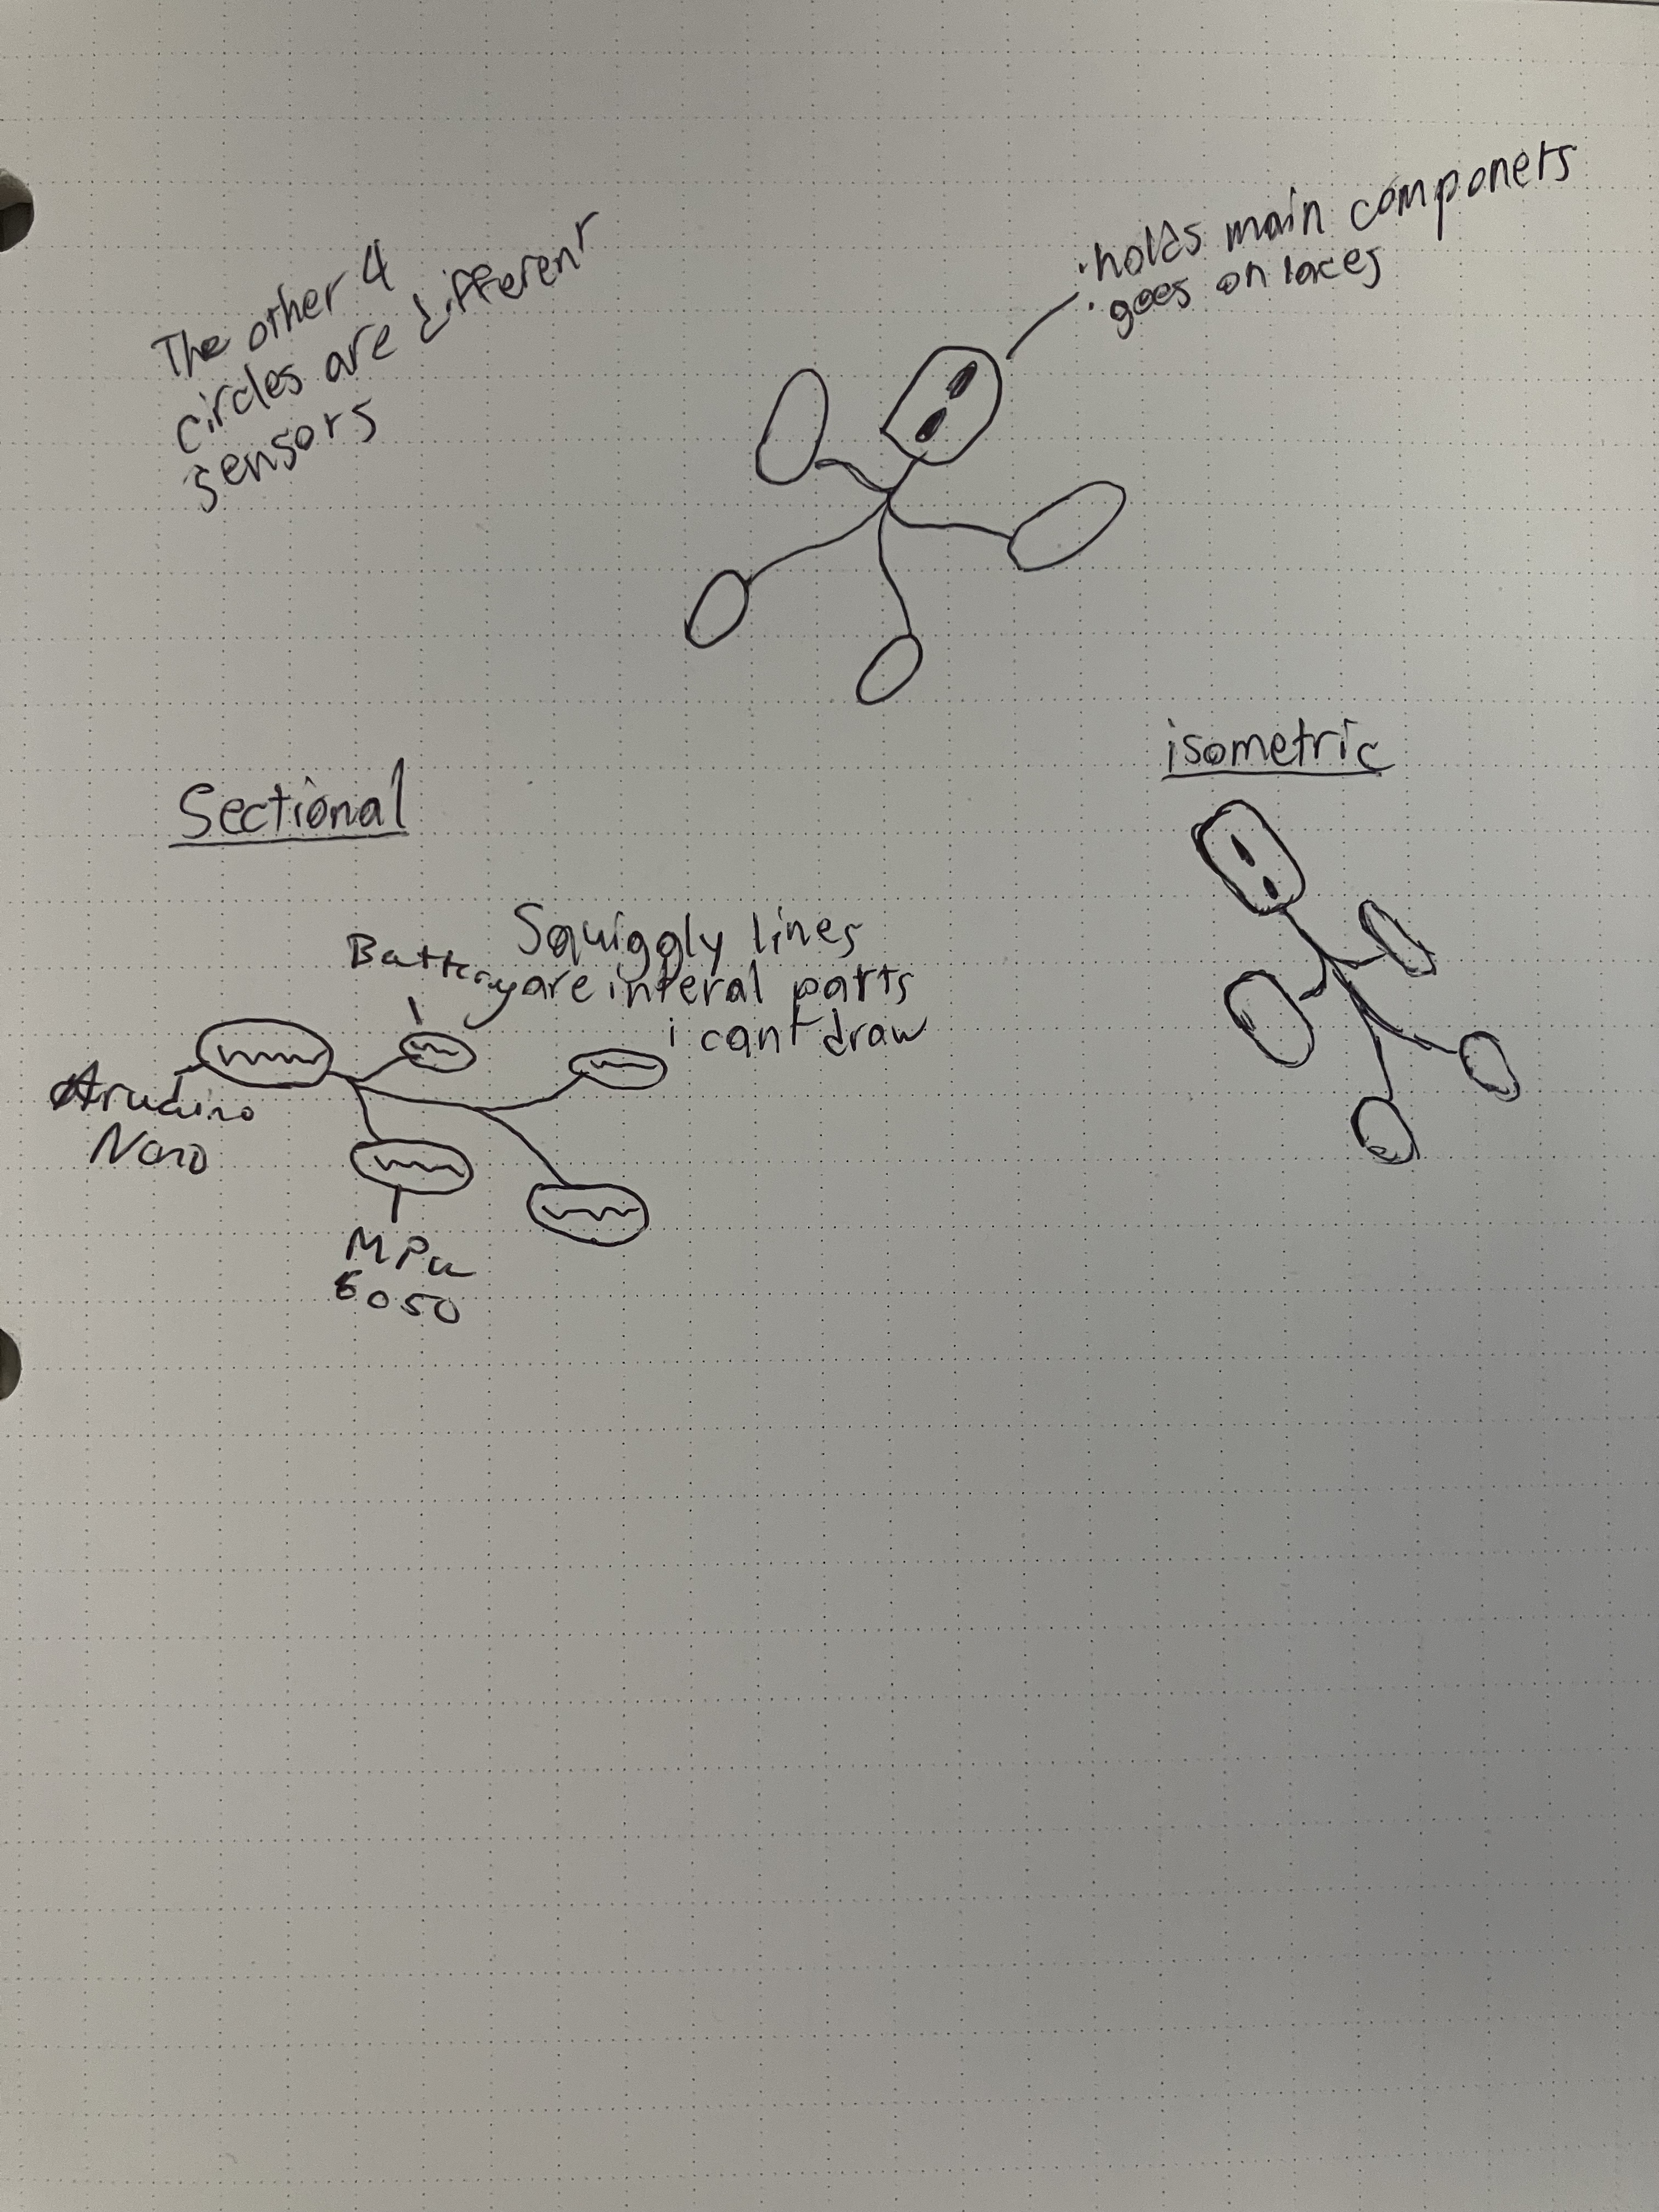 The other 4
circles are different
sensors
·holds main componets
·goes on laces
isometric
Sectional
Squiggly lines
are interal parts
i can't draw
Battery
Arudino
Nano
MPU
6050